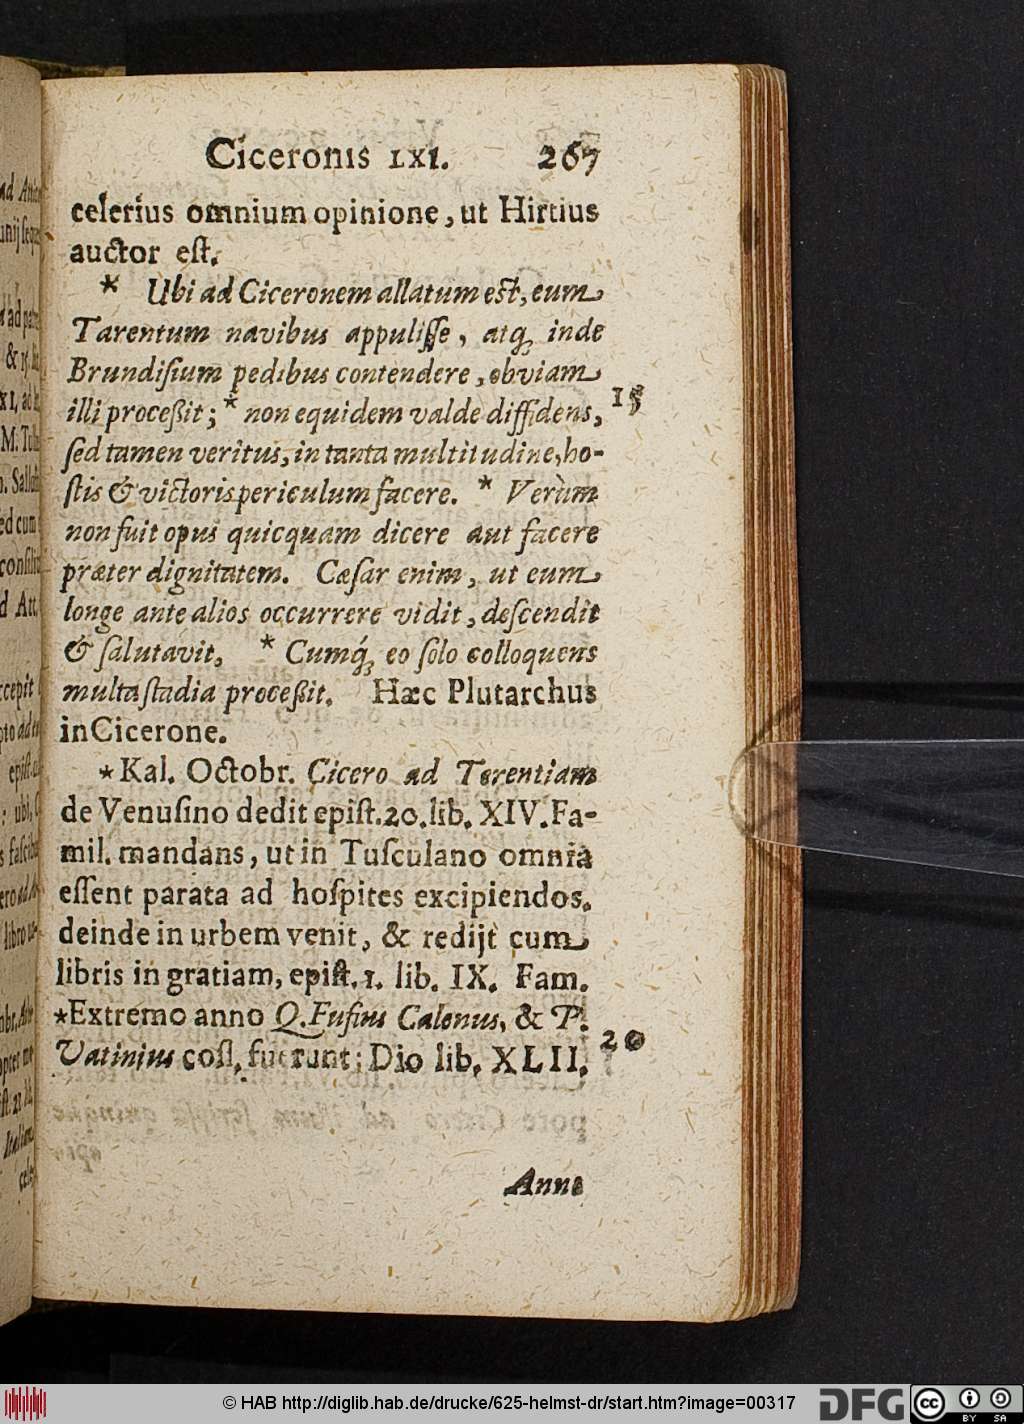 Ciceronis LXI. 267
celerius omnium opinione, ut Hirtius
auctor eſt.
* Ubi ad Ciceronem allatum eſt, eum
Tarentum navibus appuliſſe, atq́; inde
Brundiſium pedibus contendere, obviam
illi proceßit; * non equidem valde diffidens, 15
ſed tamen veritus, in tanta multitudine, ho-
ſtis & victoris periculum facere. * Verùm
non fuit opus quicquam dicere aut facere
præter dignitatem. Cæſar enim, ut eum
longe ante alios occurrere vidit, deſcendit
& ſalutavit, * Cumq́; eo ſolo colloquens
multa ſtadia proceßit. Hæc Plutarchus
in Cicerone.
* Kal. Octobr. Cicero ad Terentiam
de Venuſino dedit epiſt. 20. lib. XIV. Fa-
mil. mandans, ut in Tuſculano omnia
eſſent parata ad hoſpites excipiendos.
deinde in urbem venit, & redijt cum
libris in gratiam, epiſt. 1. lib. IX. Fam.
* Extremo anno Q. Fufius Calenus, & P.
Vatinius coſſ. fuerunt; Dio lib. XLII. 20
Anno
© HAB http://diglib.hab.de/drucke/625-helmst-dr/start.htm?image=00317
DFG
cc BY SA